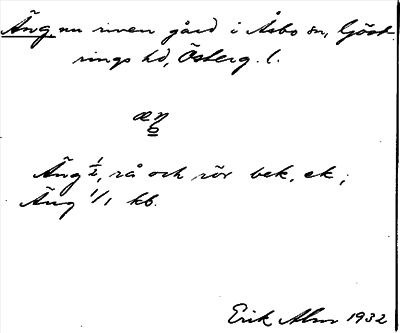 Äng, nu riven gård i Åsbo sn, Göst-
rings hd, Österg. l.
æŋ
Äng 1/2, rå och rör bek. ek.;
Äng 1/1 kb.
Erik Alm 1932